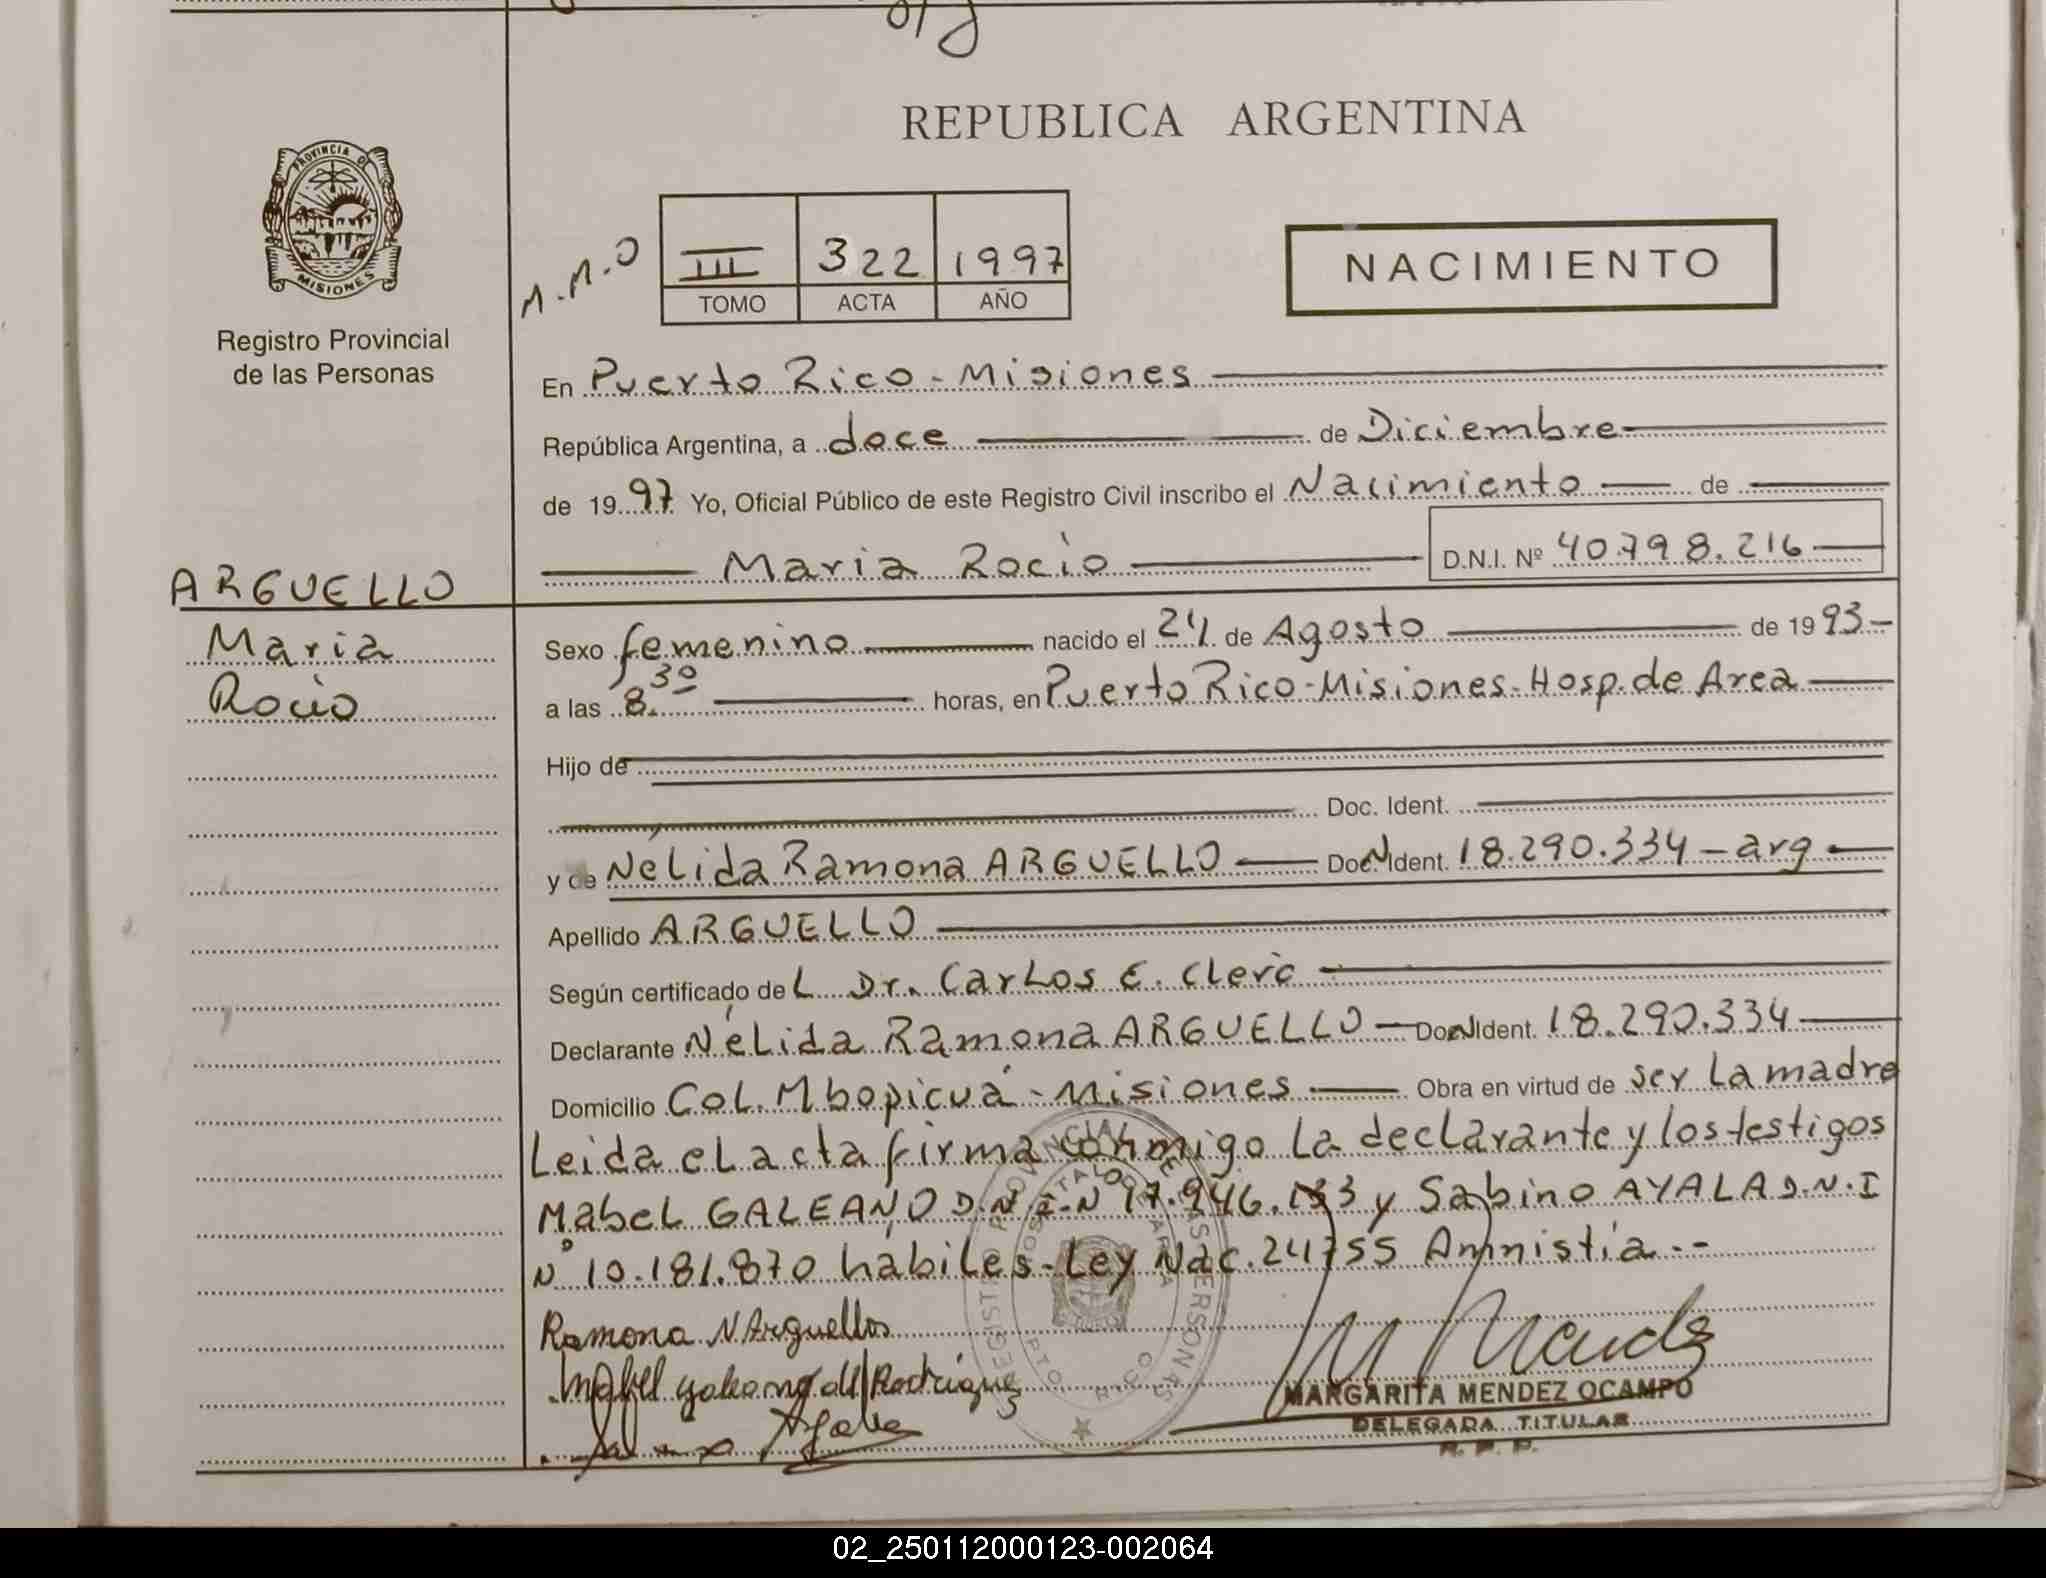 REPUBLICA ARGENTINA
PROVINCIA DE
MISIONES
Registro Provincial
de las Personas
M.M.O
III 322 1997
TOMO ACTA AÑO
NACIMIENTO
En Puerto Rico - Misiones
República Argentina, a doce de Diciembre
de 1997 Yo, Oficial Público de este Registro Civil inscribo el Nacimiento de
Maria Rocio D.N.I. Nº 40.798.216
ARGUELLO
Maria
Rocio
Sexo femenino nacido el 24 de Agosto de 1993-
a las 8.30 horas, en Puerto Rico-Misiones-Hosp.de Area
Hijo de
Doc. Ident.
y de Nélida Ramona ARGUELLO Doc.N Ident. 18.290.334-arg
Apellido ARGUELLO
Según certificado del Dr. Carlos E. Clerc
Declarante Nélida Ramona ARGUELLO Doc.N Ident. 18.290.334
Domicilio Col. Mbopicuá - Misiones Obra en virtud de ser la madre
Leida el acta firma conmigo la declarante y los testigos
Mabel GALEANO D.N.I.N 17.946.133 y Sabino AYALA D.N.I
Nº 10.181.870 hábiles-Ley Nac.24755 Amnistía.-
Ramona N Arguellos
MARGARITA MENDEZ OCAMPO
DELEGADA TITULAR
R. P. P.
02_250112000123-002064